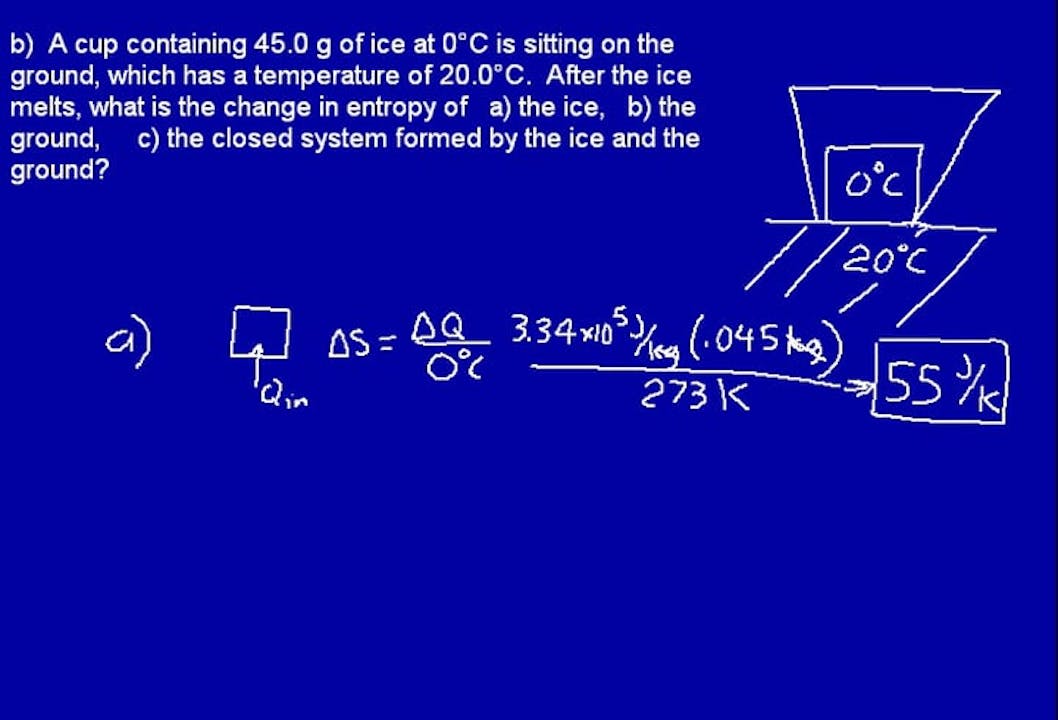 b) A cup containing 45.0 g of ice at 0°C is sitting on the
ground, which has a temperature of 20.0°C. After the ice
melts, what is the change in entropy of a) the ice, b) the
ground, c) the closed system formed by the ice and the
ground?
0°C
20°C
a) Qin ΔS = ΔQ / 0°C 3.34x10⁵ J/kg (.045 kg) / 273 K ⇒ 55 J/K